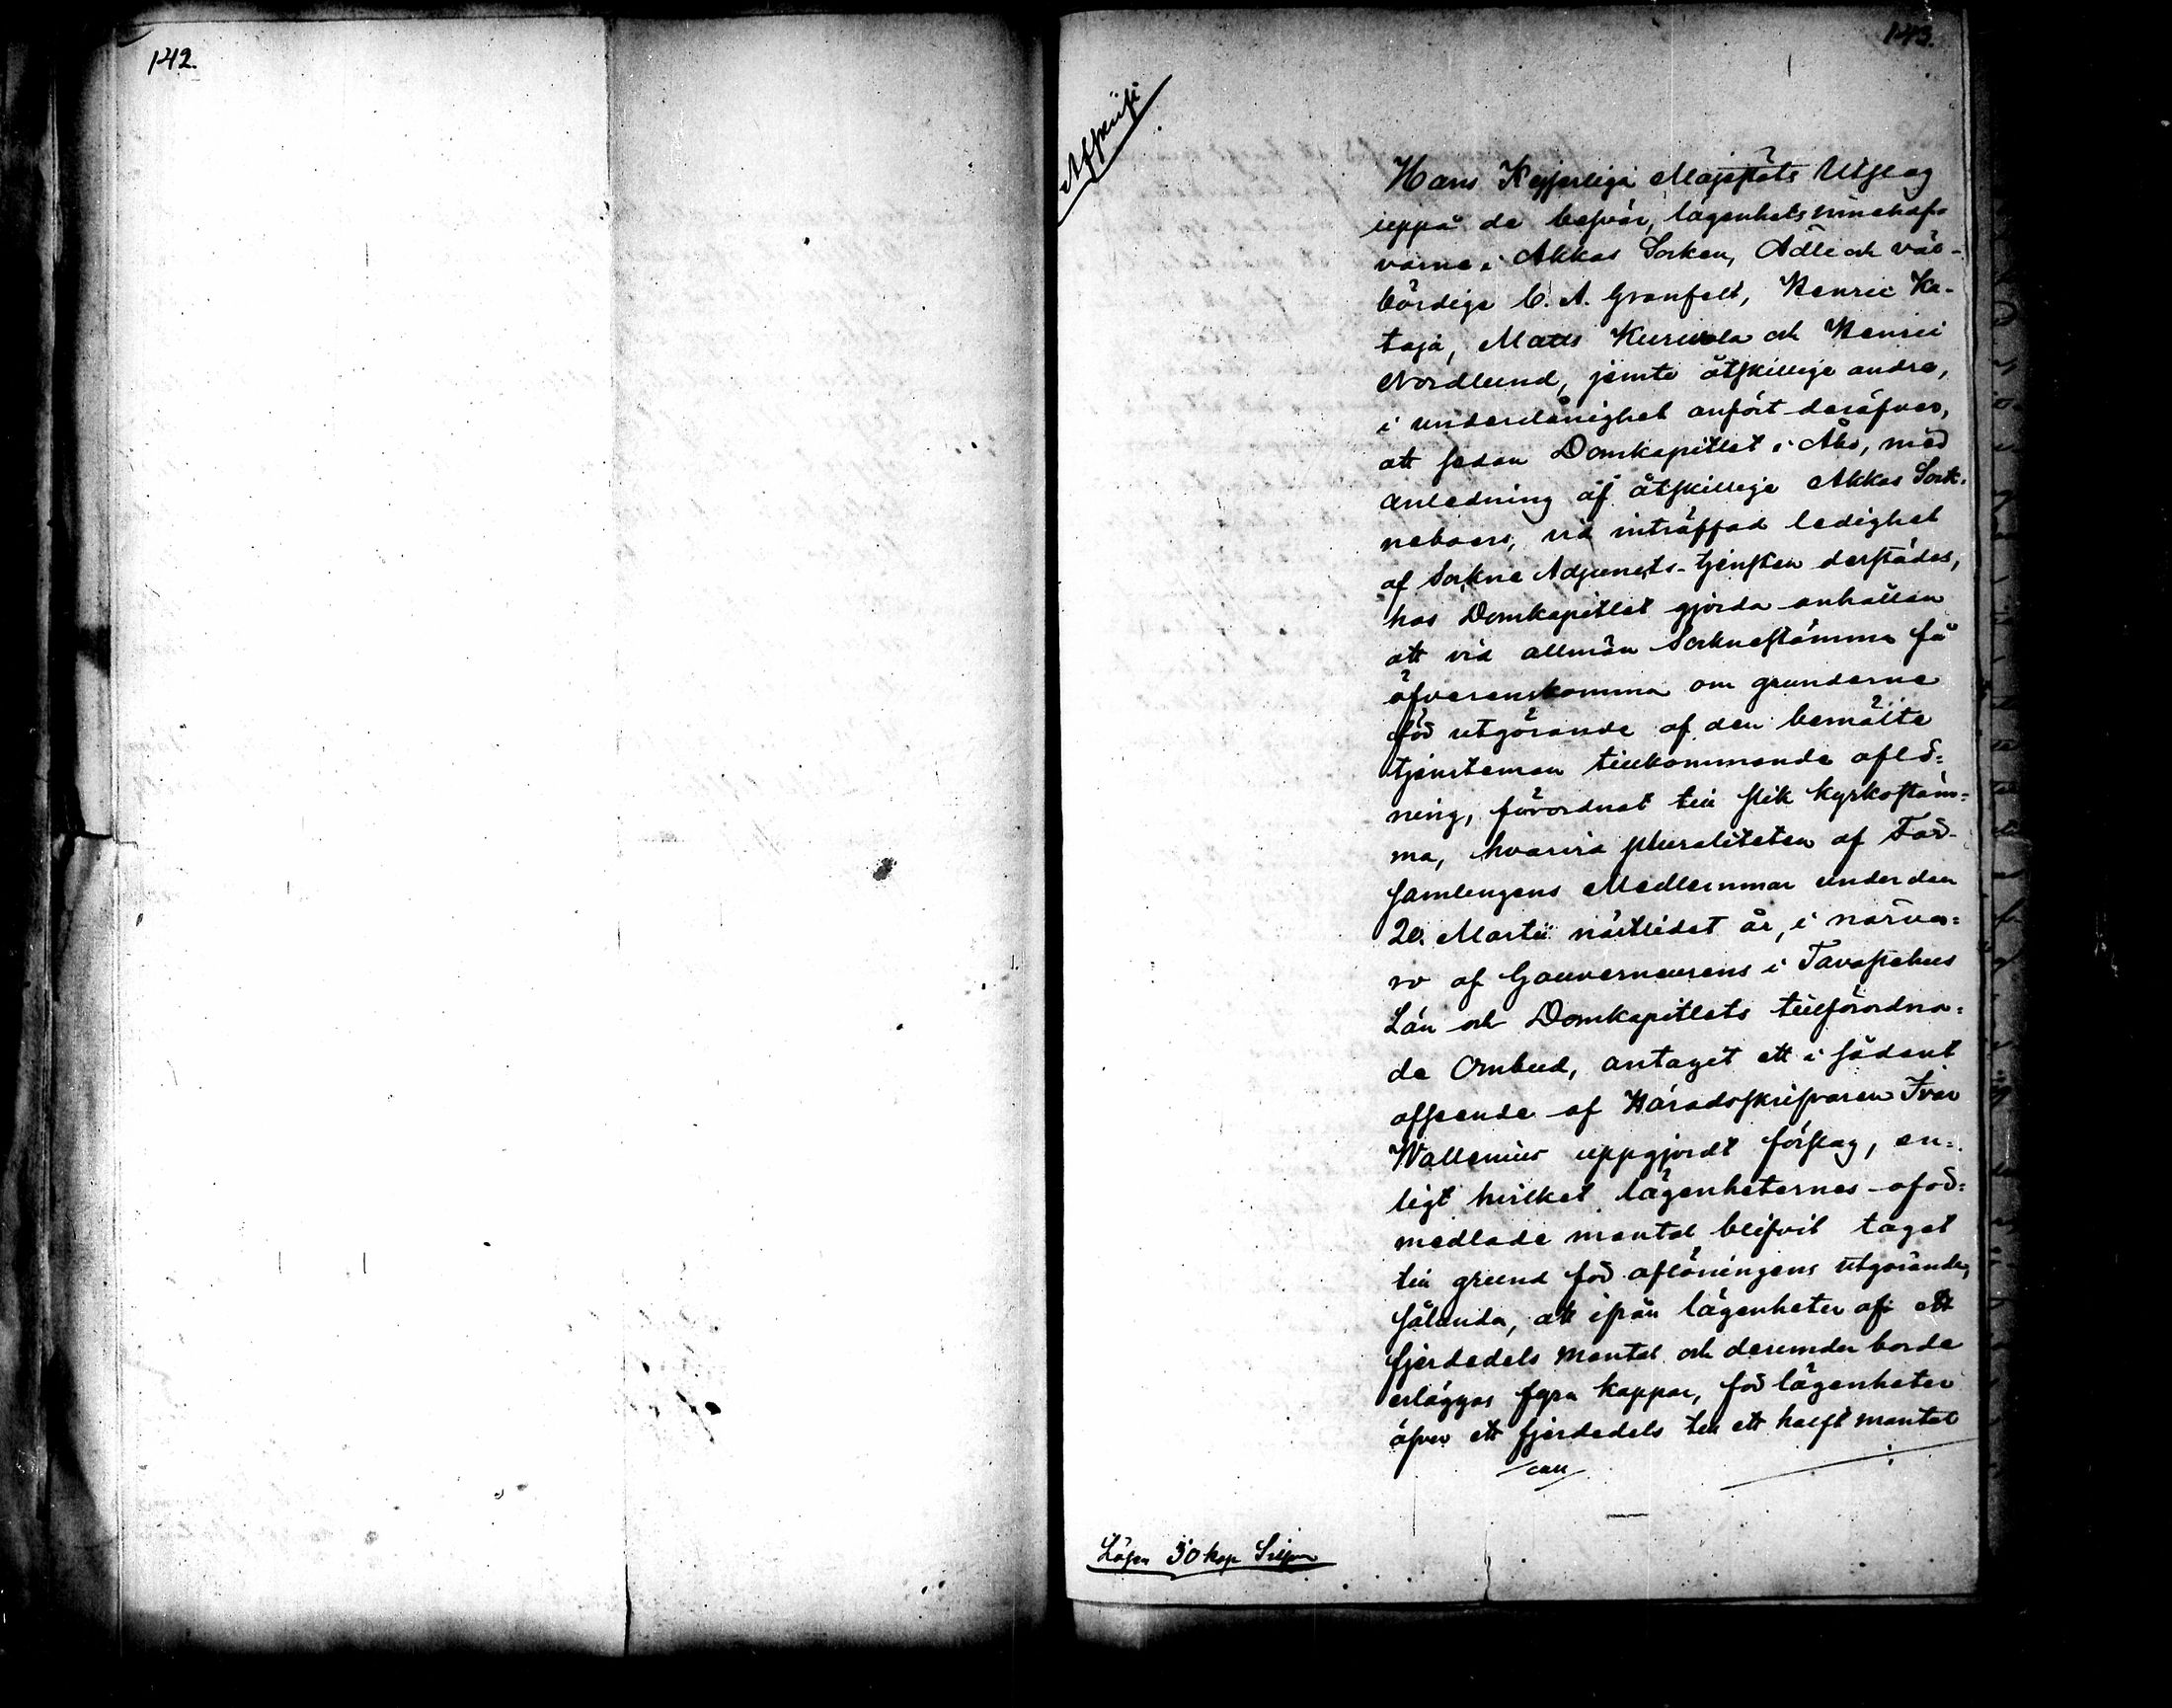 142.
143.
Afskrift
Hans Kejserliga Majestäts Utslag
uppå de besvär, lägenhetsinnehaf-
varne i Akkas Socken, Ädle och väl-
bördige C. A. Granfelt, Henric Ka-
taja, Matts Kurwola och Henric
Nordlund, jemte åtskillige andre,
i underdånighet anfört deröfver,
att sedan Domkapitlet i Åbo, med
anledning af åtskillige Akkas Sock-
neboers, vid inträffad ledighet
af Sockne Adjuncts-tjensten derstädes,
hos Domkapitlet gjorda anhållan
att vid allmän Socknestämma få
öfverenskomma om grunderne
för utgörande af den bemälte
tjensteman tillkommande aflö-
ning, förordnat till slik kyrkostäm-
ma, hvarvid pluraliteten af För-
samlingens Medlemmar under den
20. Martii nästledet år, i närva-
ro af Gouverneurens i Tavastehus
Län och Domkapitlets tillförordna-
de Ombud, antaget ett i sådant
afseende af Häradsskrifvaren Ivar
Wallenius uppgjordt förslag, en-
ligt hvilket lägenheternes oför-
medlade mantal blifvit taget
till grund för aflöningens utgörande,
sålunda, att ifrån lägenheter af ett
fjerdedels mantal och derunder borde
erläggas fyra kappar, för lägenheter
öfver ett fjerdedels till ett halft mantal
Lösen 50 kop Silfver